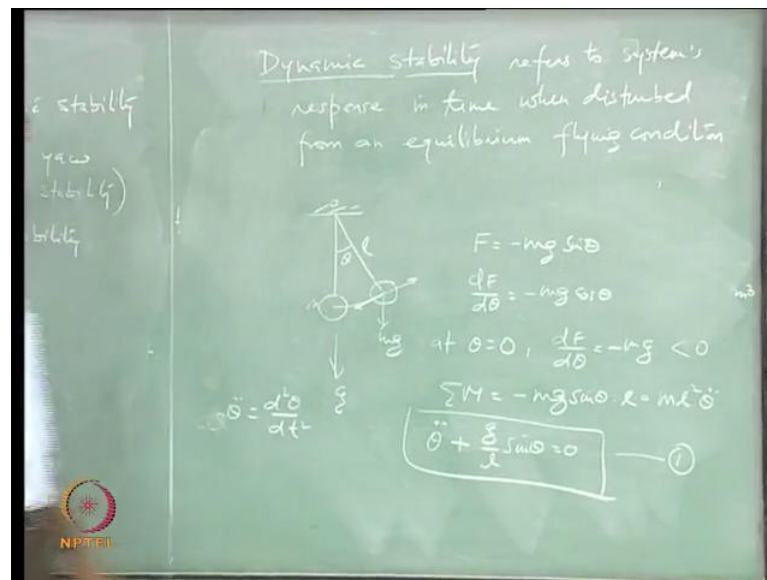 stability
yaw
stability)
bility
Dynamic stability refers to system's
response in time when disturbed
from an equilibrium flying condition
θ l
m
mg
g
F = -mg sinθ
dF/dθ = -mg cosθ
m³
at θ=0, dF/dθ = -mg < 0
ΣM = -mg sinθ · l = ml²θ̈
θ̈ = d²θ/dt²
θ̈ + g/l sinθ = 0 —— ①
NPTEL